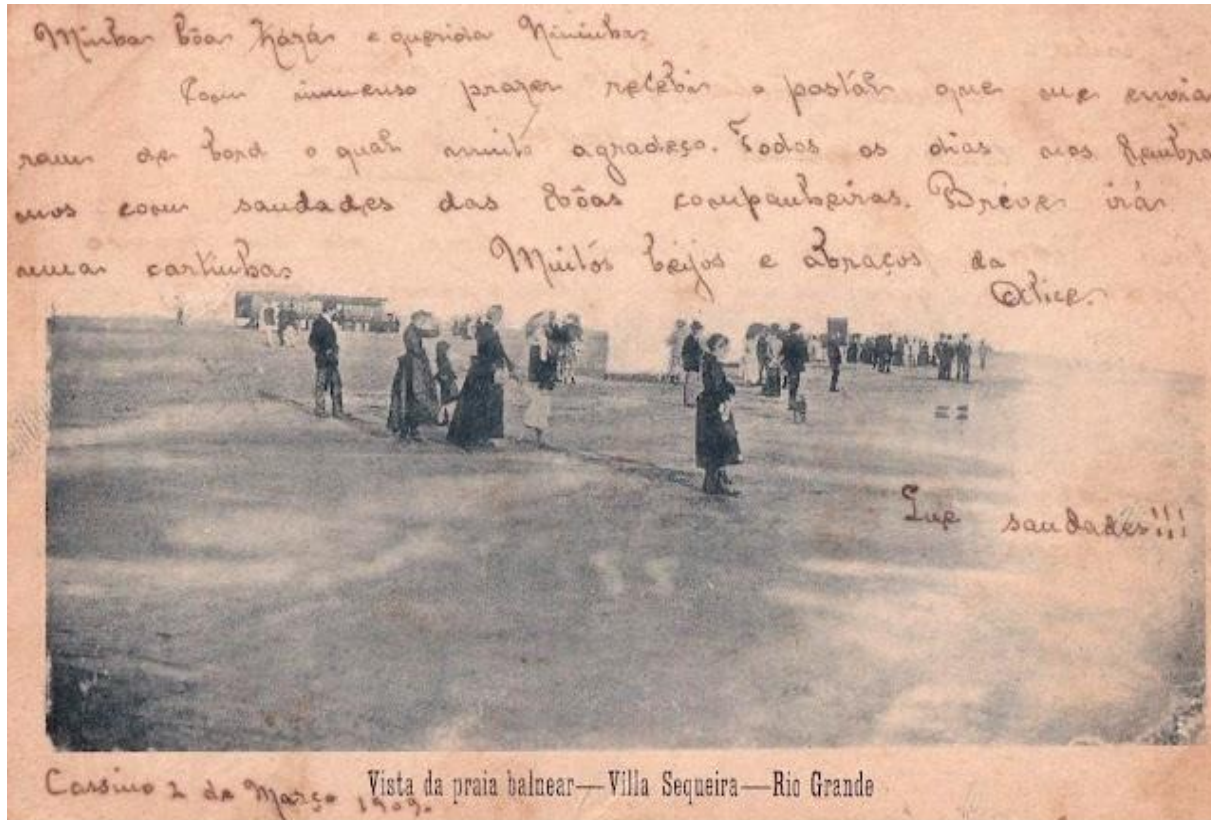 Minha bôa Zázá e querida Nininha
Com immenso prazer recebi o postál que me envia
ram de bord o qual muito agradeço. Todos os dias nos lembra
mos com saudades das bôas companheiras. Bréve irá
uma cartinha Muitós beijos e abraços da
Alice.
Que saudades!!!
Cassino 2 de Março 1909.
Vista da praia balnear—Villa Sequeira—Rio Grande